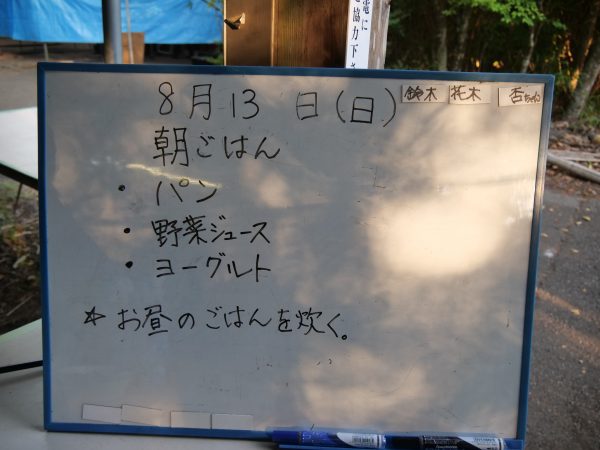 電に
協力下さ
8月13日(日)
鈴木 托木 杏ちゃん
朝ごはん
・パン
・野菜ジュース
・ヨーグルト
☆お昼のごはんを炊く。